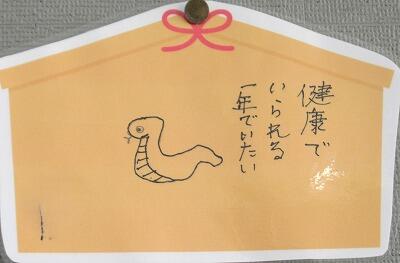 健康で
いられる
一年でいたい